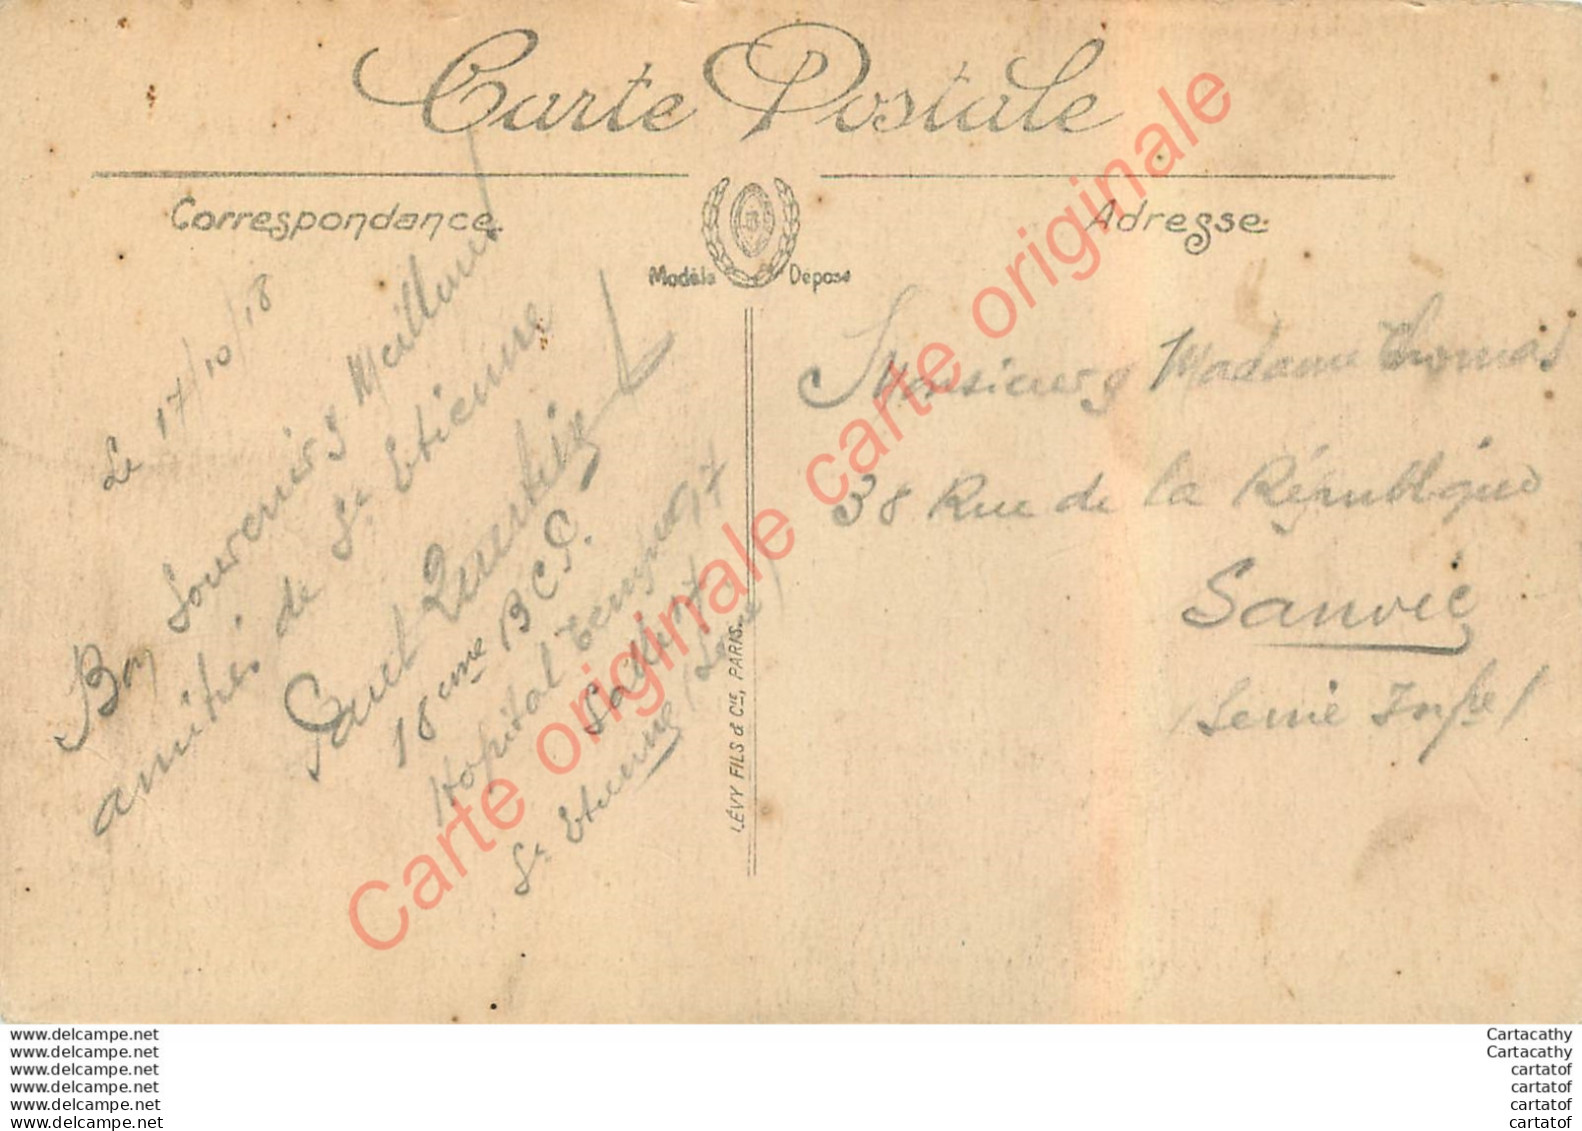 Carte Postale
Correspondance.
Adresse.
Modèle Déposé
Le 17/10/18
Bon Souvenirs Meilleures
amitiés de St Etienne
Paul Quentin
18 eme B C P.
Hopital Temp 17
Salle 17
St Etienne (Loire)
LÉVY FILS & Cie, PARIS.
Monsieur & Madame Thomas
38 Rue de la République
Sanvic
(Seine Infre)
Carte originale carte originale
Carte originale
www.delcampe.net
www.delcampe.net
www.delcampe.net
www.delcampe.net
www.delcampe.net
www.delcampe.net
Cartacathy
Cartacathy
cartatof
cartatof
cartatof
cartatof